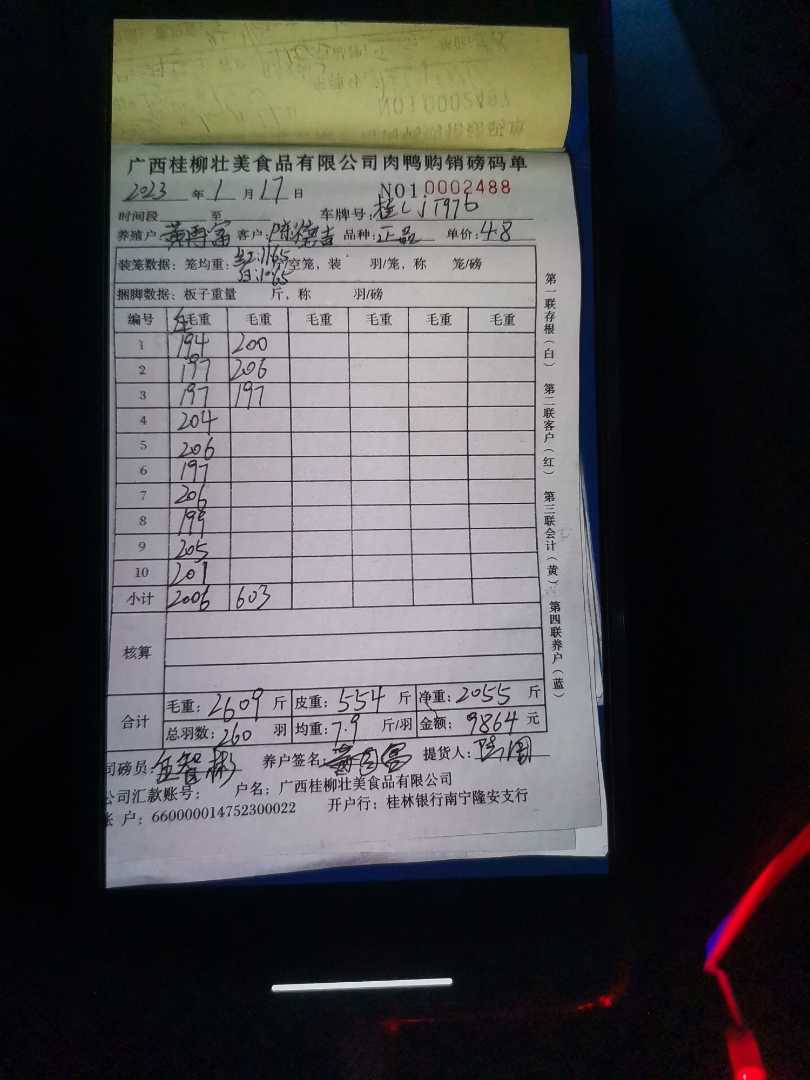 NO10002487
广西桂柳壮美食品有限公司肉鸭购销磅码单
2023 年 1 月 17 日 NO10002488
时间段 至 车牌号: 桂LJT976
养殖户 客户: 陈德吉 品种: 正品 单价: 4.8
装笼数据: 笼均重: 斤/空笼, 装 羽/笼, 称 笼/磅
捆脚数据: 板子重量 斤, 称 羽/磅
编号 毛重 毛重 毛重 毛重 毛重 毛重
1 194 200
2 197 206
3 197 197
4 204
5 206
6 197
7 206
8 199
9 205
10 201
小计 2006 603
核算
合计 毛重: 2609 斤 皮重: 554 斤 净重: 2055 斤
总羽数: 260 羽 均重: 7.9 斤/羽 金额: 9864 元
司磅员: 养户签名: 提货人:
公司汇款账号: 户名: 广西桂柳壮美食品有限公司
账 户: 660000014752300022 开户行: 桂林银行南宁隆安支行
第一联存根(白) 第二联客户(红) 第三联会计(黄) 第四联养户(蓝)